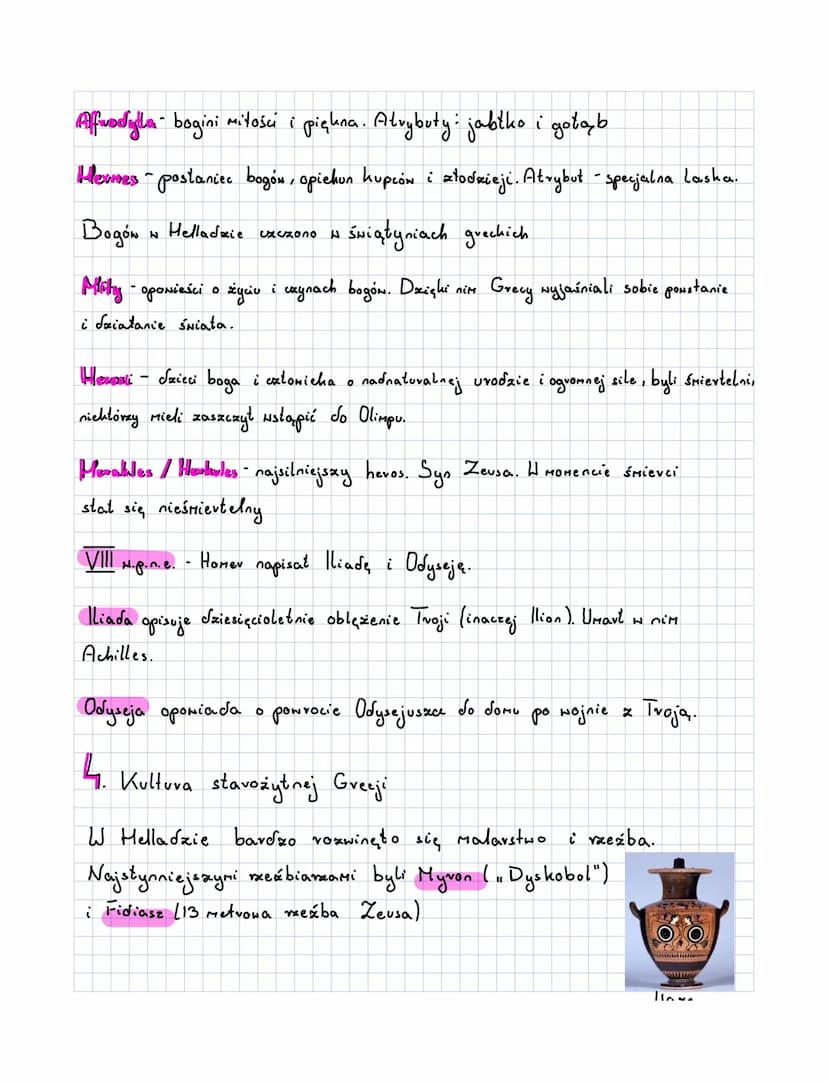 Afrodyta - bogini miłości i piękna. Atrybuty: jabłko i gołąb
Hermes - posłaniec bogów, opiekun kupców i złodzieji. Atrybut - specjalna laska.
Bogów w Helladzie czczono w świątyniach greckich
Mity - opowieści o życiu i czynach bogów. Dzięki nim Grecy wyjaśniali sobie powstanie
i działanie świata.
Herosi - dzieci boga i człowieka o nadnaturalnej urodzie i ogromnej sile, byli śmiertelni,
niektórzy mieli zaszczyt wstąpić do Olimpu.
Herakles / Herkules - najsilniejszy heros. Syn Zeusa. W momencie śmierci
stał się nieśmiertelny
VIII w.p.n.e. - Homer napisał Iliadę i Odyseję.
Iliada opisuje dziesięcioletnie oblężenie Troji (inaczej Ilion). Umarł w nim
Achilles.
Odyseja opowiada o powrocie Odysejusza do domu po wojnie z Troją.
4. Kultura starożytnej Grecji
W Helladzie bardzo rozwinęło się malarstwo i rzeźba.
Najsłynniejszymi rzeźbiarzami byli Myron („Dyskobol")
i Fidiasz (13 metrowa rzeźba Zeusa)